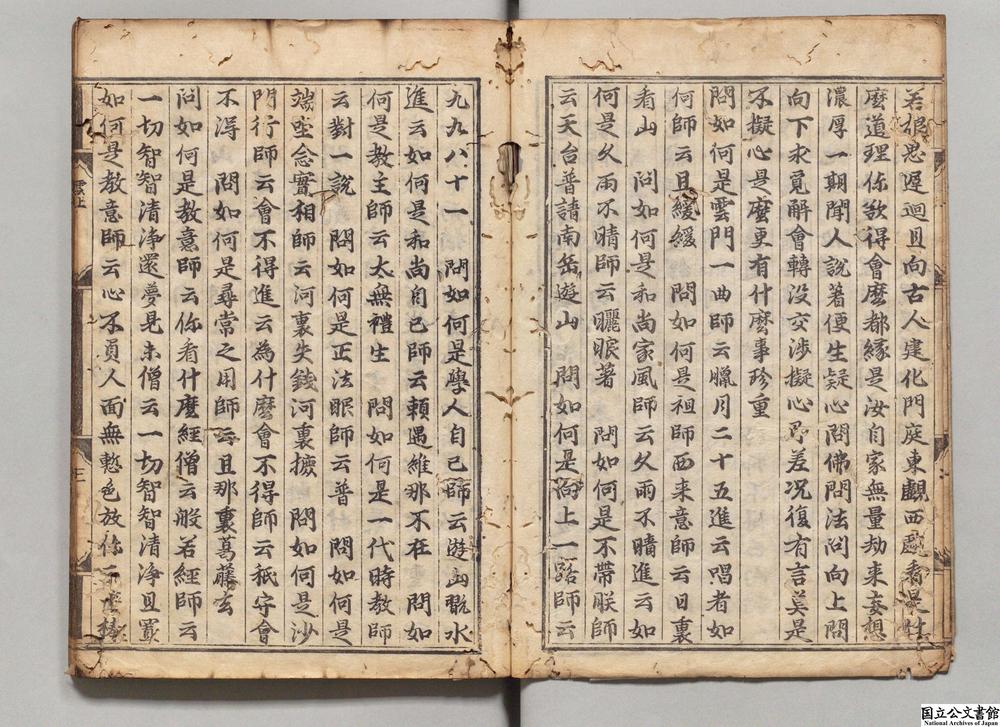 若根思遲迴且向古人建化門庭東覰西覰看是什
麼道理你欲得會麼都緣是汝自家無量劫来妄想
濃厚一期聞人說著便生疑心問佛問法问向上問
向下求覓解會轉没交渉擬心即差况復有言莫是
不擬心是麼更有什麽事珍重
問如何是雲門一曲師云臘月二十五進云唱者如
何師云且緩緩　問如何是祖師西来意師云日裏
看山　问如何是和尚家風師云久雨不晴進云如
何是久雨不晴師云曬眼著　問如何是不帶朕師
云天台普請南岳遊山　問如何是向上一路師云
九九八十一　問如何是學人自己師云遊山翫水
進云如何是和尚自己師云賴遇維那不在　問如
何是教主師云太無禮生　問如何是一代時教師
云對一說　問如何是正法眼師云普　問如何是
端坐念實相師云河裏失錢河裏摝　問如何是沙
門行師云會不得進云為什麽會不得師云衹守會
不淂　問如何是尋常之用師云且那裏葛藤去
问如何是教意師云你看什麼經僧云般若經師云
一切智智清浄還夢見未僧云一切智智清浄且置
如何是教意師云心不負人面無慙色放你三十棒
雲上
三
国立公文書館
National Archives of Japan